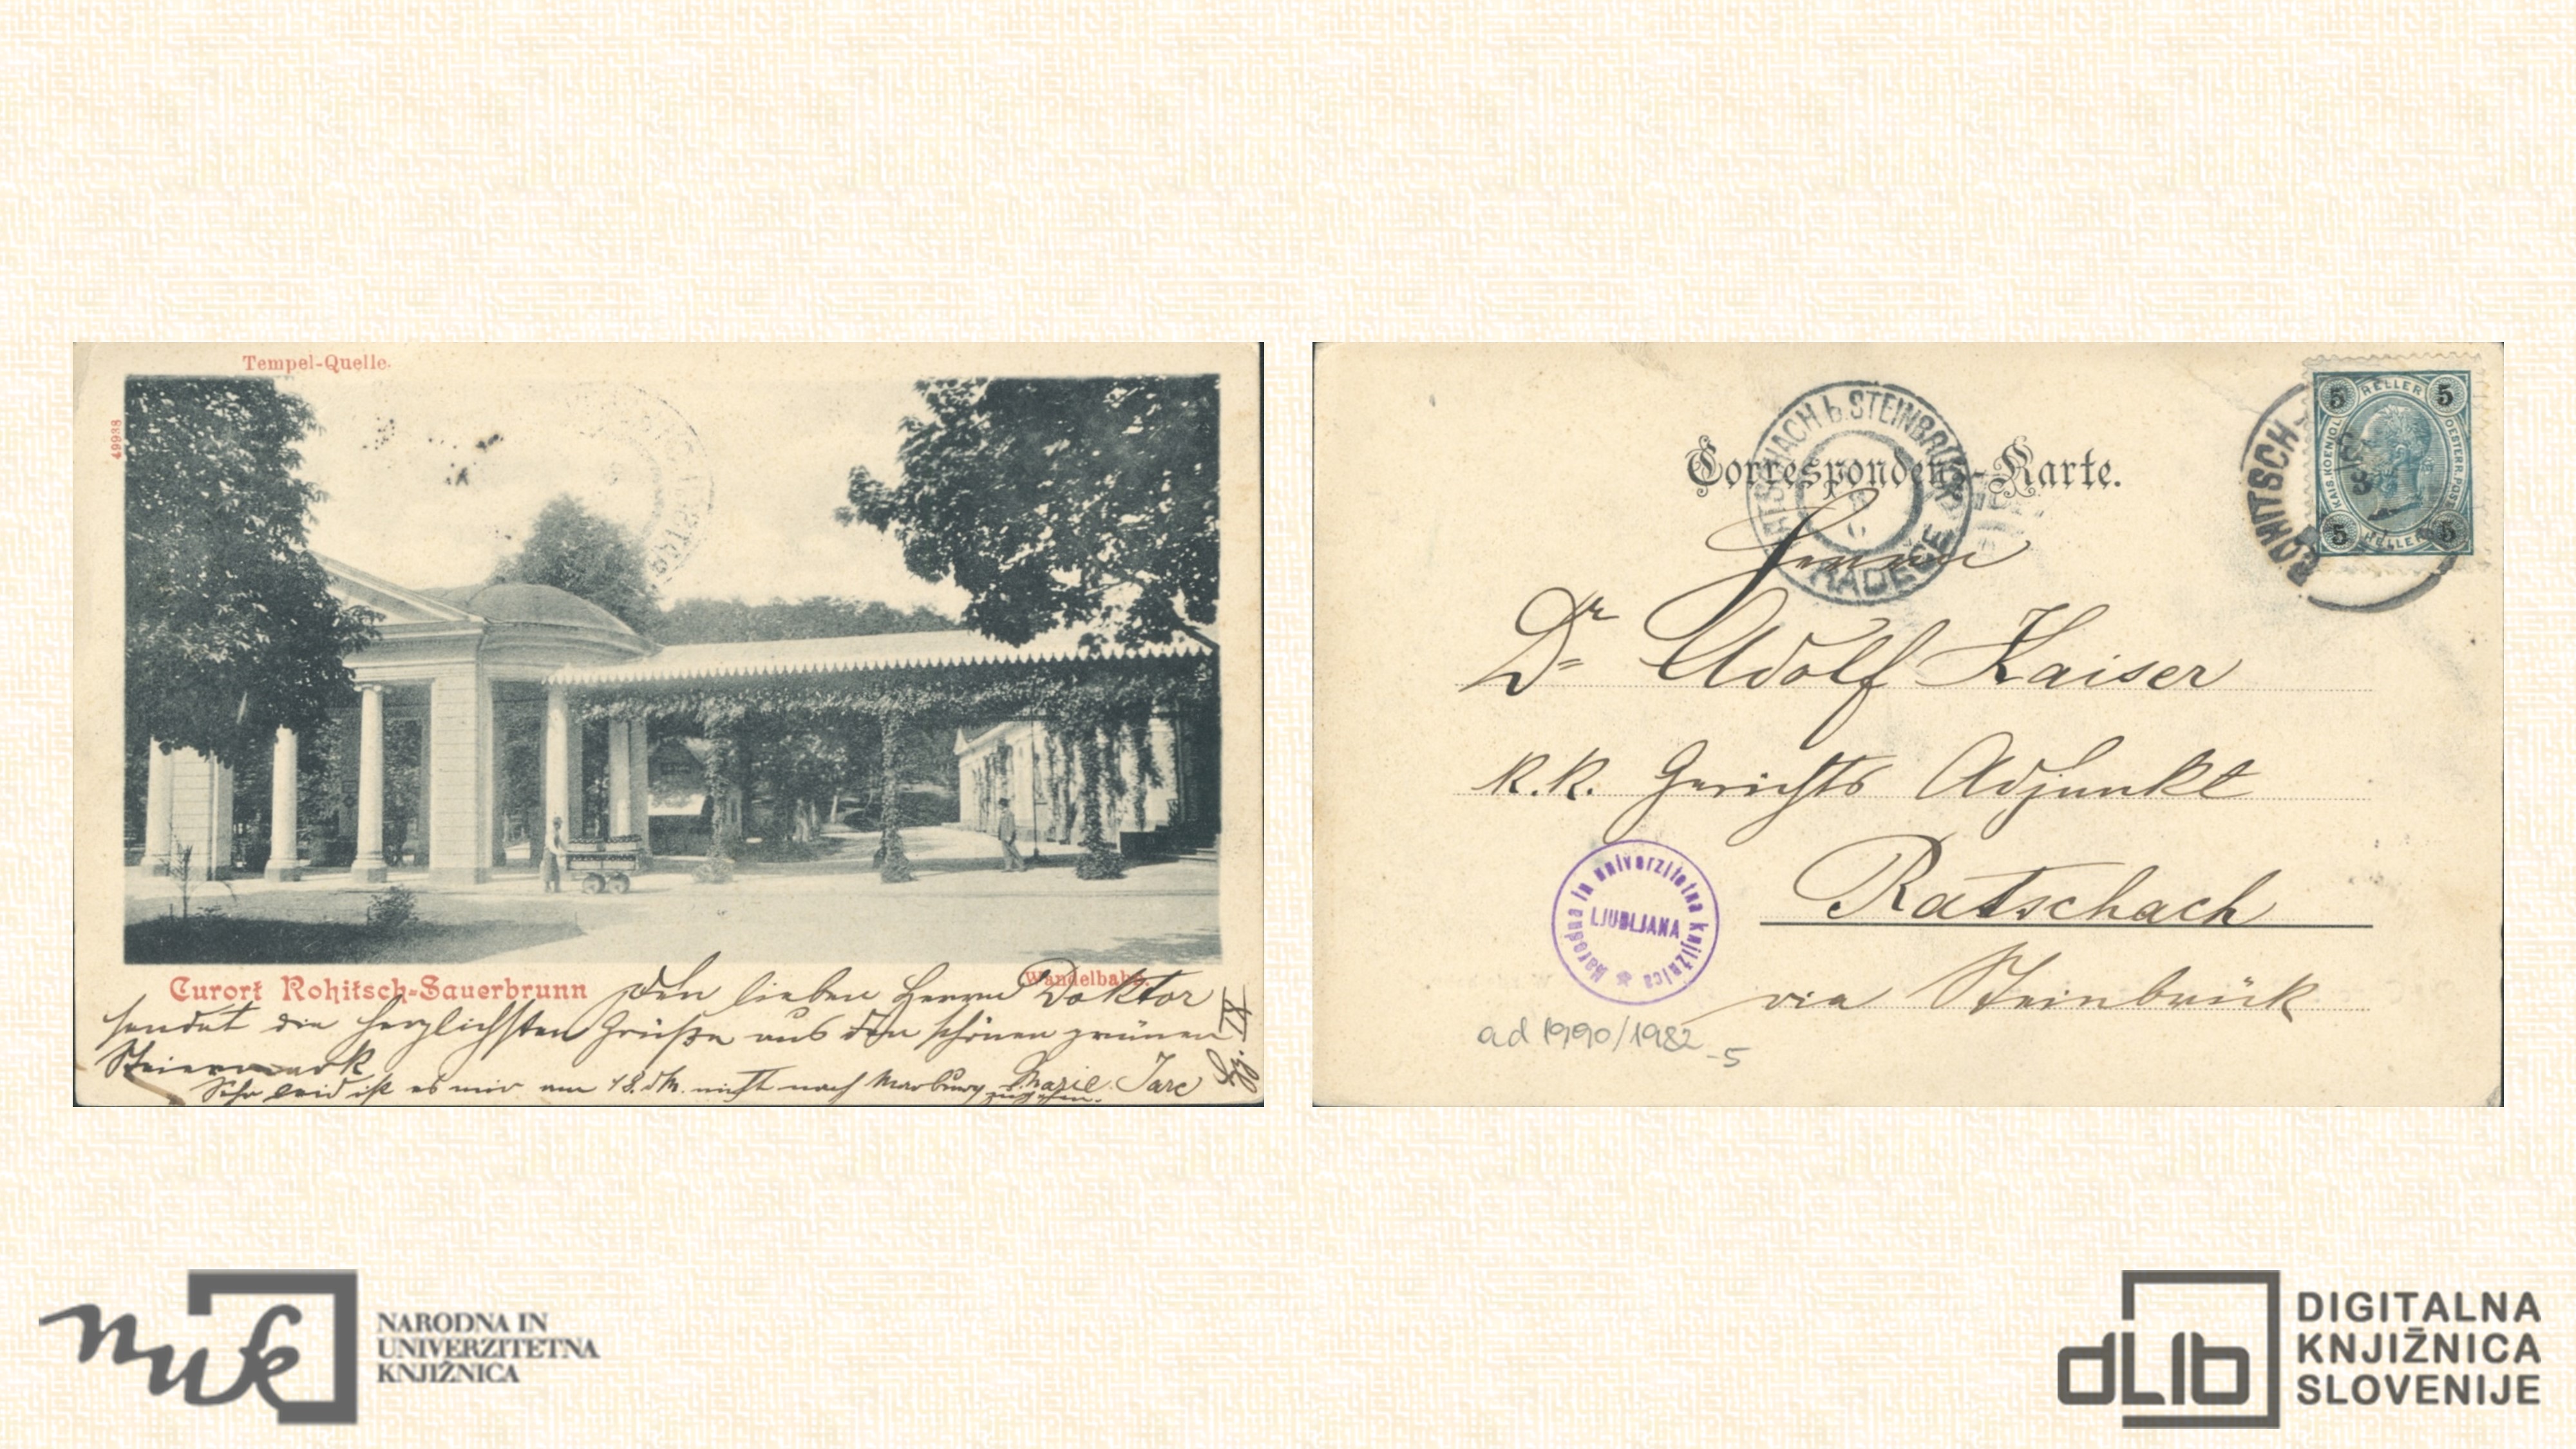 Tempel-Quelle.
49938
Curort Rohitsch-Sauerbrunn
Wandelbahn.
Den lieben Herrn Doktor
sendet die herzlichsten Grüße aus der schönen grünen
Steiermark
Sehr leid ist es mir am 18. dM. nicht nach Marburg
Marie Jarc
Correspondenz-Karte.
RATSCHACH b. STEINBRÜCK
RADEČE
ROHITSCH-
5 HELLER 5
KAIS. KOENIGL. OESTERR. POST
5 HELLER 5
Herrn
Dr Adolf Kaiser
k.k. Gerichts Adjunkt
Ratschach
via Steinbrück
Narodna in univerzitetna knjižnica
LJUBLJANA
ad 1990/1982
-5
nuk
NARODNA IN
UNIVERZITETNA
KNJIŽNICA
dLib
DIGITALNA
KNJIŽNICA
SLOVENIJE